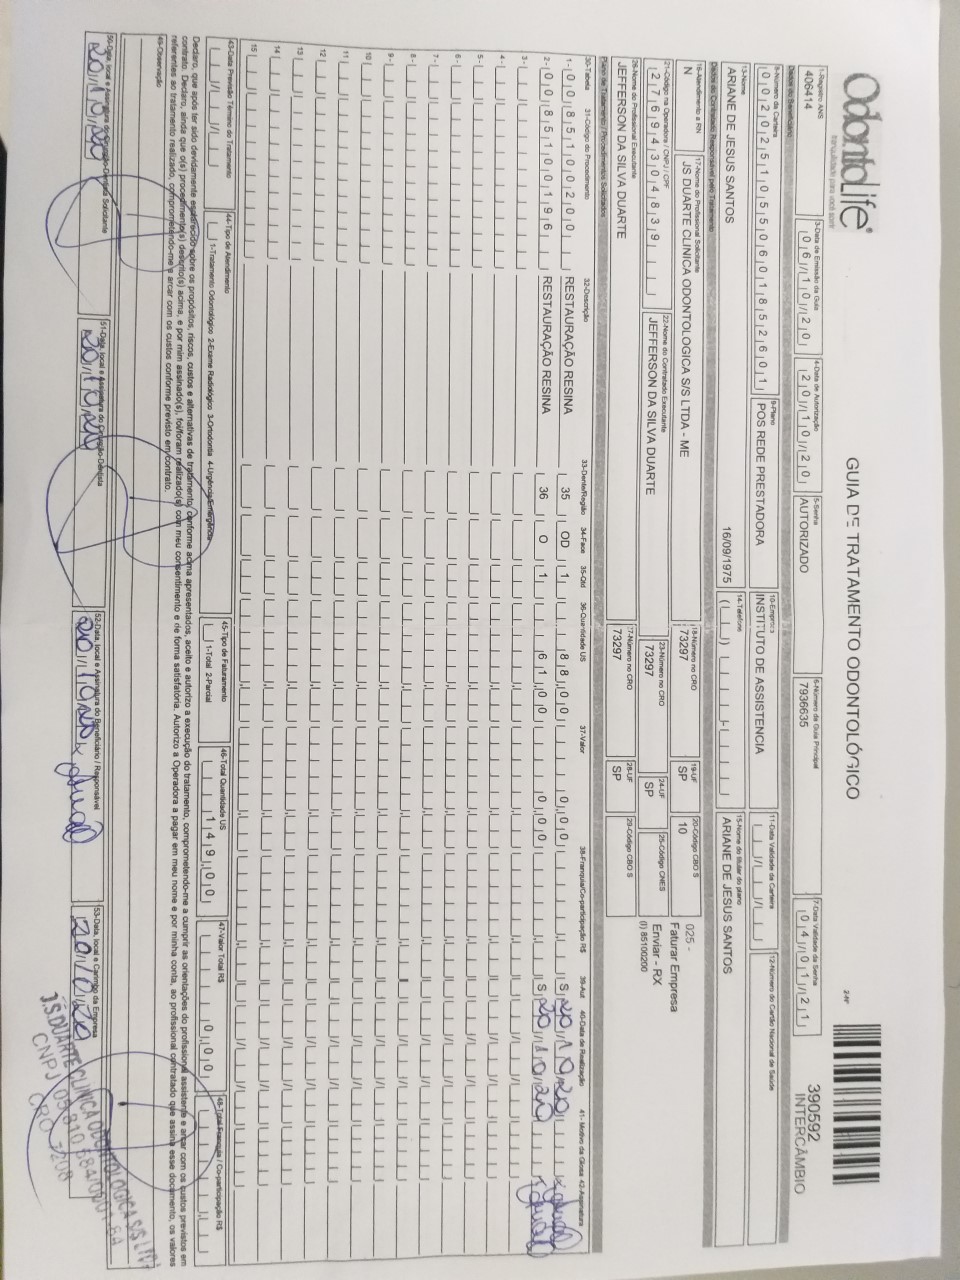 OdontoLife®
tranquilidade para você sorrir
GUIA DE TRATAMENTO ODONTOLÓGICO
2-Nº
390592
INTERCÂMBIO
1-Registro ANS
406414
3-Data de Emissão da Guia
06/10/20
4-Data de Autorização
20/10/20
5-Senha
AUTORIZADO
6-Número da Guia Principal
7936635
7-Data Validade da Senha
04/01/21
Dados do Beneficiário
8-Número da Carteira
00202510550601852601
9-Plano
POS REDE PRESTADORA
10-Empresa
INSTITUTO DE ASSISTENCIA
11-Data Validade da Carteira
12-Número do Cartão Nacional de Saúde
13-Nome
ARIANE DE JESUS SANTOS
16/09/1975
14-Telefone
15-Nome do titular do plano
ARIANE DE JESUS SANTOS
Dados do Contratado Responsável pelo Tratamento
16-Atendimento a RN
N
17-Nome do Profissional Solicitante
JS DUARTE CLINICA ODONTOLOGICA S/S LTDA - ME
18-Número no CRO
73297
19-UF
SP
20-Código CBO S
10
025 -
Faturar Empresa
Enviar - RX
(I) 85100200
21-Código na Operadora / CNPJ / CPF
27669430483 9
22-Nome do Contratado Executante
JEFFERSON DA SILVA DUARTE
23-Número no CRO
73297
24-UF
SP
25-Código CNES
26-Nome do Profissional Executante
JEFFERSON DA SILVA DUARTE
27-Número no CRO
73297
28-UF
SP
29-Código CBO S
Plano de Tratamento / Procedimentos Solicitados
30-Tabela 31-Código do Procedimento 32-Descrição 33-Dente/Região 34-Face 35-Qtd 36-Quantidade US 37-Valor 38-Franquia/Co-participação R$ 39-Aut 40-Data de Realização 41- Motivo da Glosa 42-Assinatura
1- 00 85100200 RESTAURAÇÃO RESINA 35 OD 1 88,00 0,00 S 20/10/20
2- 00 85100196 RESTAURAÇÃO RESINA 36 O 1 61,00 0,00 S 20/10/20
3-
4-
5-
6-
7-
8-
9-
10
11
12
13
14
15
43-Data Previsão Término do Tratamento
44-Tipo de Atendimento
1-Tratamento Odontológico 2-Exame Radiológico 3-Ortodontia 4-Urgência/Emergência
45-Tipo de Faturamento
1-Total 2-Parcial
46-Total Quantidade US
149,00
47-Valor Total R$
0,00
48-Total Franquia / Co-participação R$
Declaro, que após ter sido devidamente esclarecido sobre os propósitos, riscos, custos e alternativas de tratamento, conforme acima apresentados, aceito e autorizo a execução do tratamento, comprometendo-me a cumprir as orientações do profissional assistente e arcar com os custos previstos em
contrato. Declaro, ainda que o(s) procedimento(s) descrito(s) acima, e por mim assinado(s), foi/foram realizado(s) com meu consentimento e de forma satisfatória. Autorizo a Operadora a pagar em meu nome e por minha conta, ao profissional contratado que assina esse documento, os valores
referentes ao tratamento realizado, comprometendo-me a arcar com os custos conforme previsto em contrato.
49-Observação
50-Data, local e Assinatura do Cirurgião-Dentista Solicitante
20/10/20
51-Data, local e Assinatura do Cirurgião-Dentista
20/10/20
52-Data, local e Assinatura do Beneficiário / Responsável
20/10/20
53-Data, local e Carimbo da Empresa
20/10/20
J.S.DUARTE CLINICA ODONTOLOGICA S/S LTDA
CRO 7208